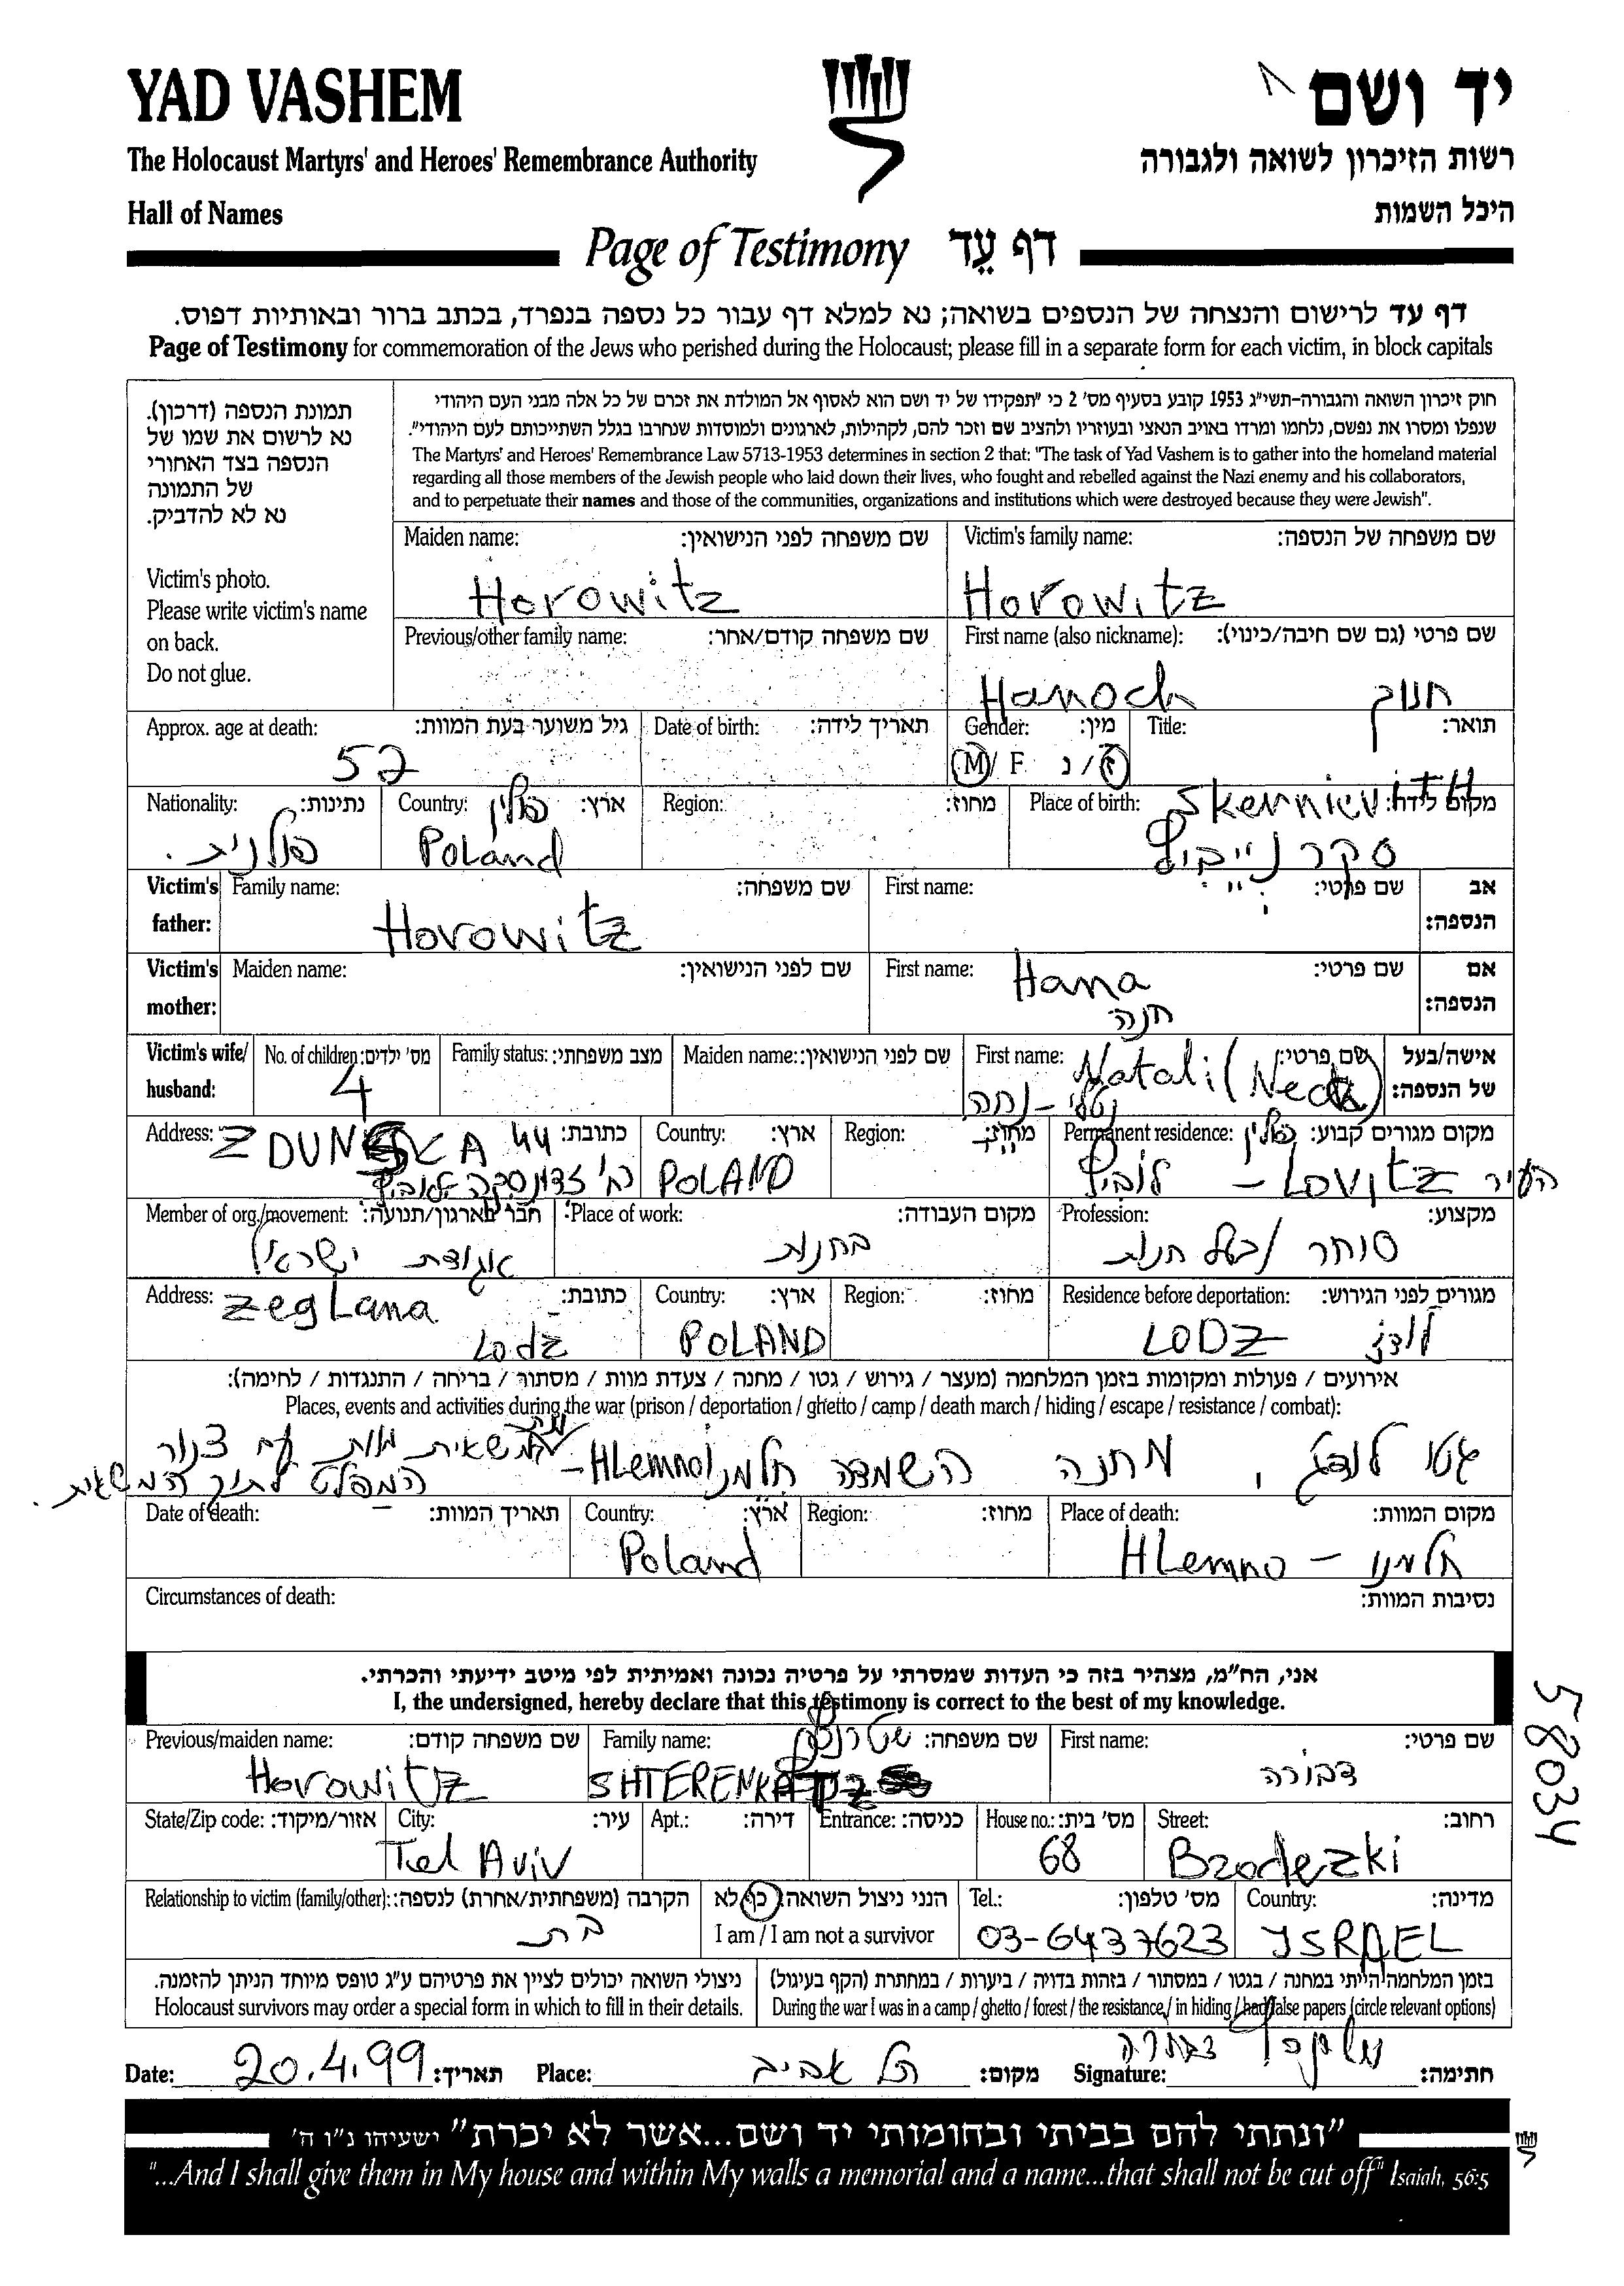 YAD VASHEM
יד ושם
The Holocaust Martyrs' and Heroes' Remembrance Authority
רשות הזיכרון לשואה ולגבורה
Hall of Names
היכל השמות
Page of Testimony דף עֵד
דף עד לרישום והנצחה של הנספים בשואה; נא למלא דף עבור כל נספה בנפרד, בכתב ברור ובאותיות דפוס.
Page of Testimony for commemoration of the Jews who perished during the Holocaust; please fill in a separate form for each victim, in block capitals
תמונת הנספה (דרכון).
נא לרשום את שמו של
הנספה בצד האחורי
של התמונה
נא לא להדביק.
Victim's photo.
Please write victim's name
on back.
Do not glue.
חוק זיכרון השואה והגבורה-תשי"ג 1953 קובע בסעיף מס' 2 כי "תפקידו של יד ושם הוא לאסוף אל המולדת את זכרם של כל אלה מבני העם היהודי
שנפלו ומסרו את נפשם, נלחמו ומרדו באויב הנאצי ובעוזריו ולהציב שם וזכר להם, לקהילות, לארגונים ולמוסדות שנחרבו בגלל השתייכותם לעם היהודי".
The Martyrs' and Heroes' Remembrance Law 5713-1953 determines in section 2 that: "The task of Yad Vashem is to gather into the homeland material
regarding all those members of the Jewish people who laid down their lives, who fought and rebelled against the Nazi enemy and his collaborators,
and to perpetuate their names and those of the communities, organizations and institutions which were destroyed because they were Jewish".
Maiden name: שם משפחה לפני הנישואין: Victim's family name: שם משפחה של הנספה:
Horowitz Horowitz
Previous/other family name: שם משפחה קודם/אחר: First name (also nickname): שם פרטי (גם שם חיבה/כינוי):
Hanoch חנוך
Approx. age at death: גיל משוער בעת המוות: Date of birth: תאריך לידה: Gender: מין: Title: תואר:
52 M/ F ז/ נ
Nationality: נתינות: Country: ארץ: Region: מחוז: Place of birth: מקום לידה:
פולנית. פולין Poland Skernievith
סקרנייביץ
Victim's father: Family name: שם משפחה: First name: שם פרטי: אב הנספה:
Horowitz
Victim's mother: Maiden name: שם לפני הנישואין: First name: שם פרטי: אם הנספה:
Hana
חנה
Victim's wife/ husband: No. of children: מס' ילדים: Family status: מצב משפחתי: Maiden name: שם לפני הנישואין: First name: שם פרטי: אישה/בעל של הנספה:
4 Natali
Address: כתובת: Country: ארץ: Region: מחוז: Permanent residence: מקום מגורים קבוע:
ZDUNSKA 44 POLAND פולין
לוביץ - LOVITZ העיר
Member of org./movement: חבר בארגון/תנועה: Place of work: מקום העבודה: Profession: מקצוע:
אגודת ישראל בחנות סוחר / בעל חנות
Address: כתובת: Country: ארץ: Region: מחוז: Residence before deportation: מגורים לפני הגירוש:
Zeglana
Lodz POLAND LODZ לודז
אירועים / פעולות ומקומות בזמן המלחמה (מעצר / גירוש / גטו / מחנה / צעדת מוות / מסתור / בריחה / התנגדות / לחימה):
Places, events and activities during the war (prison / deportation / ghetto / camp / death march / hiding / escape / resistance / combat):
גטו לודז', מחנה השמדה חלמנו Hlemno - משאית מוות עם צנור
המפלט לתוך המשאית.
Date of death: תאריך המוות: Country: ארץ: Region: מחוז: Place of death: מקום המוות:
Poland Hlemno - חלמנו
Circumstances of death: נסיבות המוות:
אני, הח"מ, מצהיר בזה כי העדות שמסרתי על פרטיה נכונה ואמיתית לפי מיטב ידיעתי והכרתי.
I, the undersigned, hereby declare that this testimony is correct to the best of my knowledge.
Previous/maiden name: שם משפחה קודם: Family name: שם משפחה: First name: שם פרטי:
Horowitz SHTERENKATZ דבורה
State/Zip code: אזור/מיקוד: City: עיר: Apt.: דירה: Entrance: כניסה: House no.: מס' בית: Street: רחוב:
Tel Aviv 68 Brodezki
Relationship to victim (family/other): הקרבה (משפחתית/אחרת) לנספה: הנני ניצול השואה: כן/לא Tel.: מס' טלפון: Country: מדינה:
בת I am / I am not a survivor 03-6437623 ISRAEL
ניצולי השואה יכולים לציין את פרטיהם ע"ג טופס מיוחד הניתן להזמנה.
Holocaust survivors may order a special form in which to fill in their details.
בזמן המלחמה הייתי במחנה / בגטו / במסתור / בזהות בדויה / ביערות / במחתרת (הקף בעיגול)
During the war I was in a camp / ghetto / forest / the resistance / in hiding / had false papers (circle relevant options)
Date: 20.4.99 תאריך: Place: תל אביב מקום: Signature: דבורה חתימה:
58034
"ונתתי להם בביתי ובחומותי יד ושם...אשר לא יכרת" ישעיהו נ"ו ה'
"...And I shall give them in My house and within My walls a memorial and a name...that shall not be cut off" Isaiah, 56:5